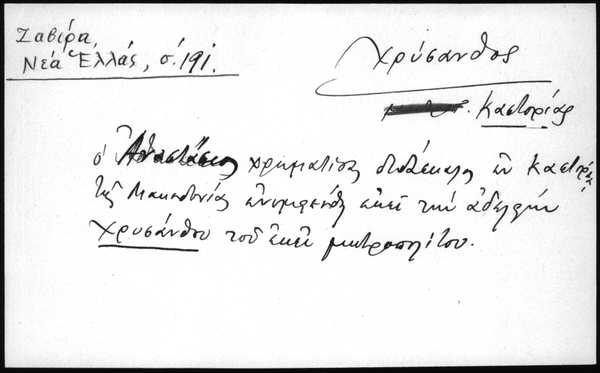 Ζαβίρα,
Νέα Ἑλλάς, σ. 191.
Χρύσανθος
Καστορίας
ὁ Ἀναστάσιος χρηματίσας διδάσκαλος ἐν Καστορίᾳ
τῆς Μακεδονίας ἐνυμφεύθη ἐκεῖ τὴν ἀδελφὴν
Χρυσάνθου τοῦ ἐκεῖ μητροπολίτου.